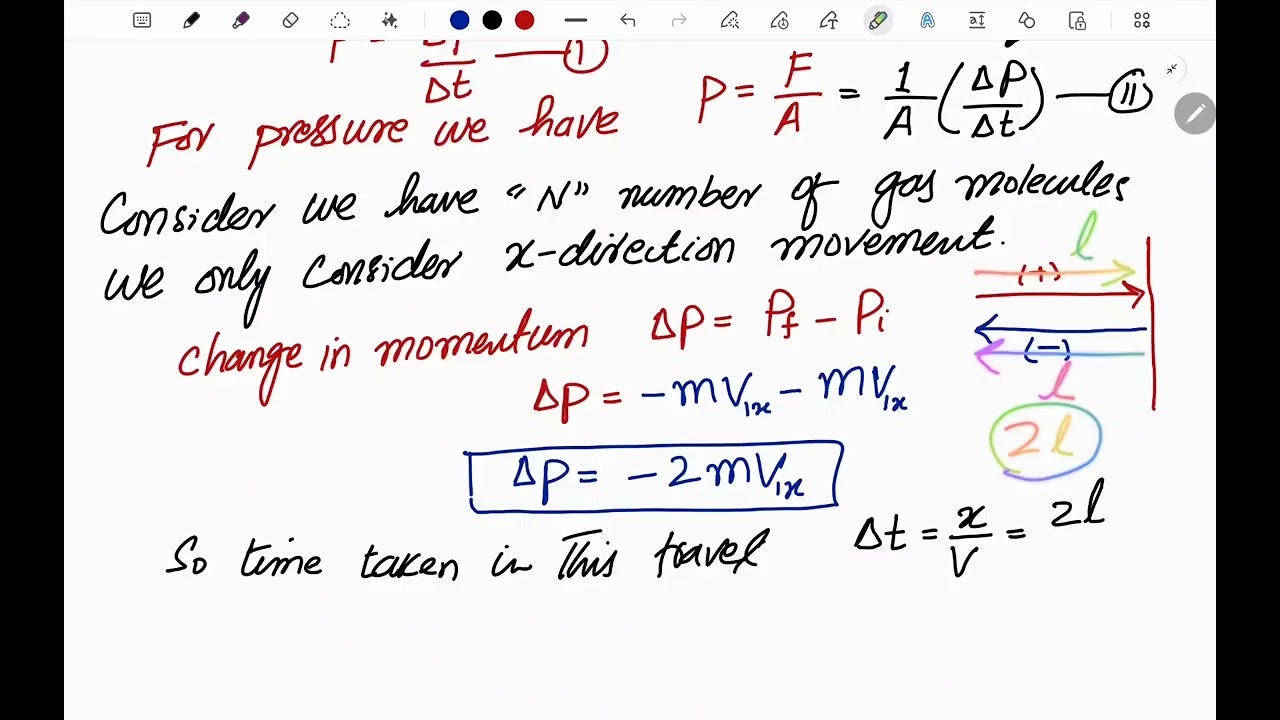 Δt —— (I)
P = F/A = 1/A (ΔP/Δt) —— (II)
For pressure we have
Consider we have "N" number of gas molecules
we only consider x-direction movement.
l
(+)
change in momentum ΔP = Pf - Pi
(-)
l
ΔP = -mV1x - mV1x
2l
ΔP = -2mV1x
So time taken in This travel Δt = x/V = 2l